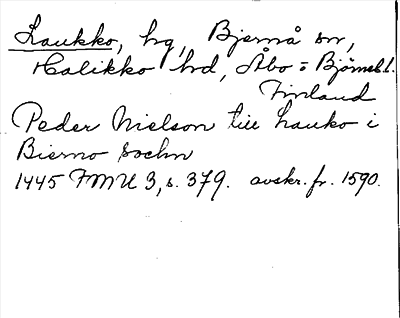 Laukko, hg, Bjernå sn,
Halikko hd, Åbo = Björneb. l.
Finland
Peder Nielson till Lauko i
Bierno sochn
1445 FMU 3, s. 379. avskr. fr. 1590.